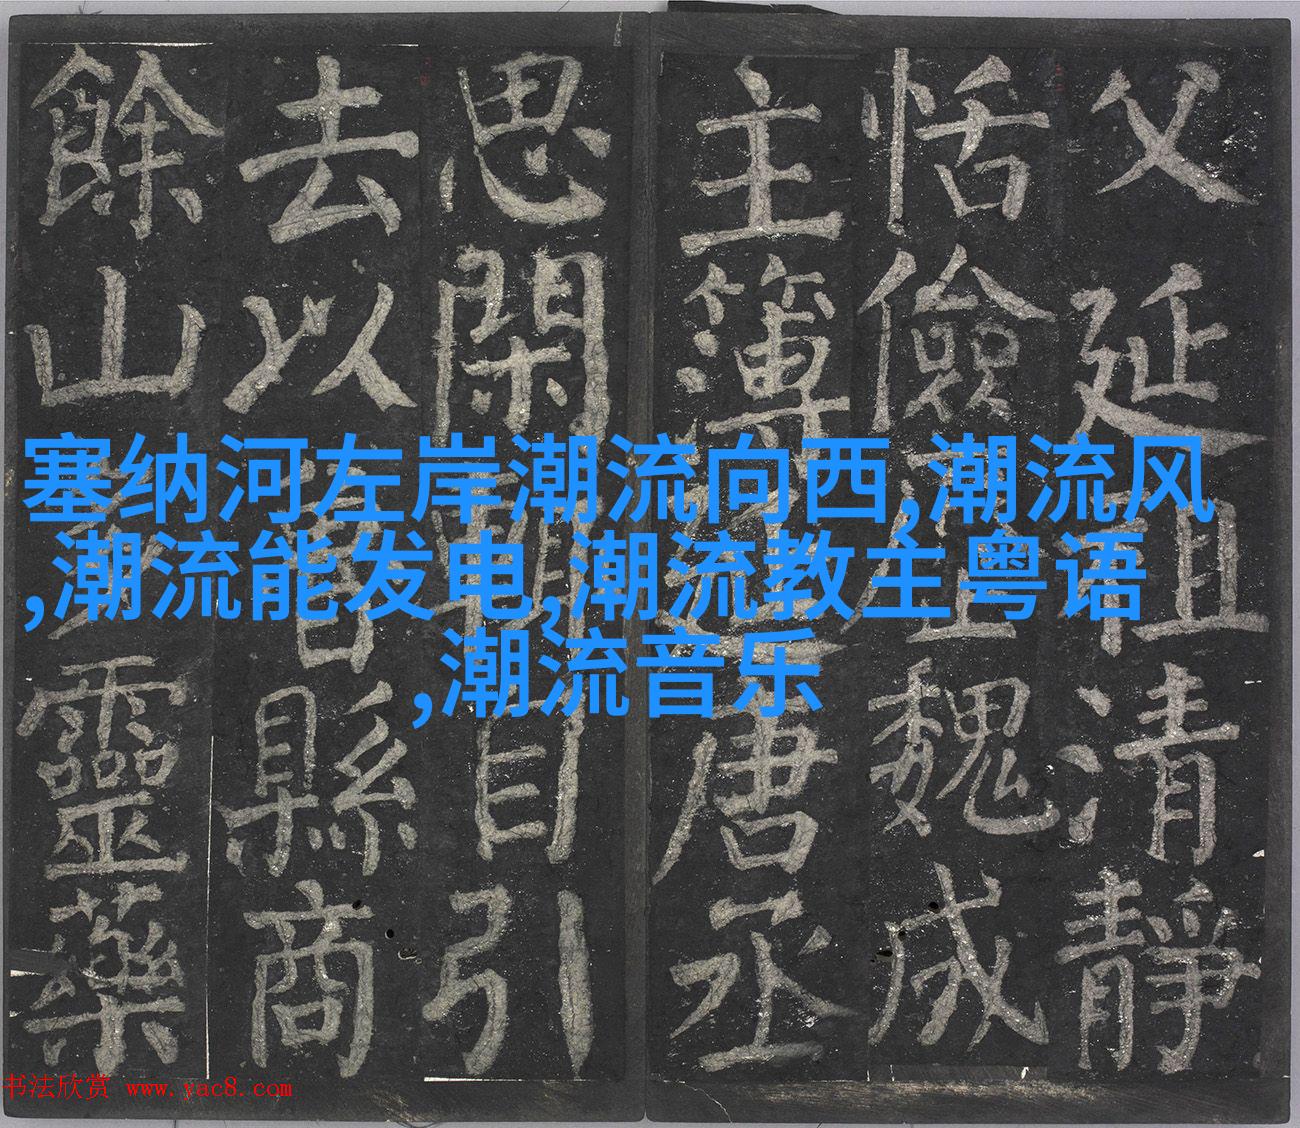 塞纳河左岸潮流向西,潮流风
,潮流能发电,潮流教主粤语
,潮流音乐
父延祖清靜
恬儉魏成
主簿延唐丞
思閑自引
去以魯縣商
餘山靈藥
书法欣赏 www.yac8.com